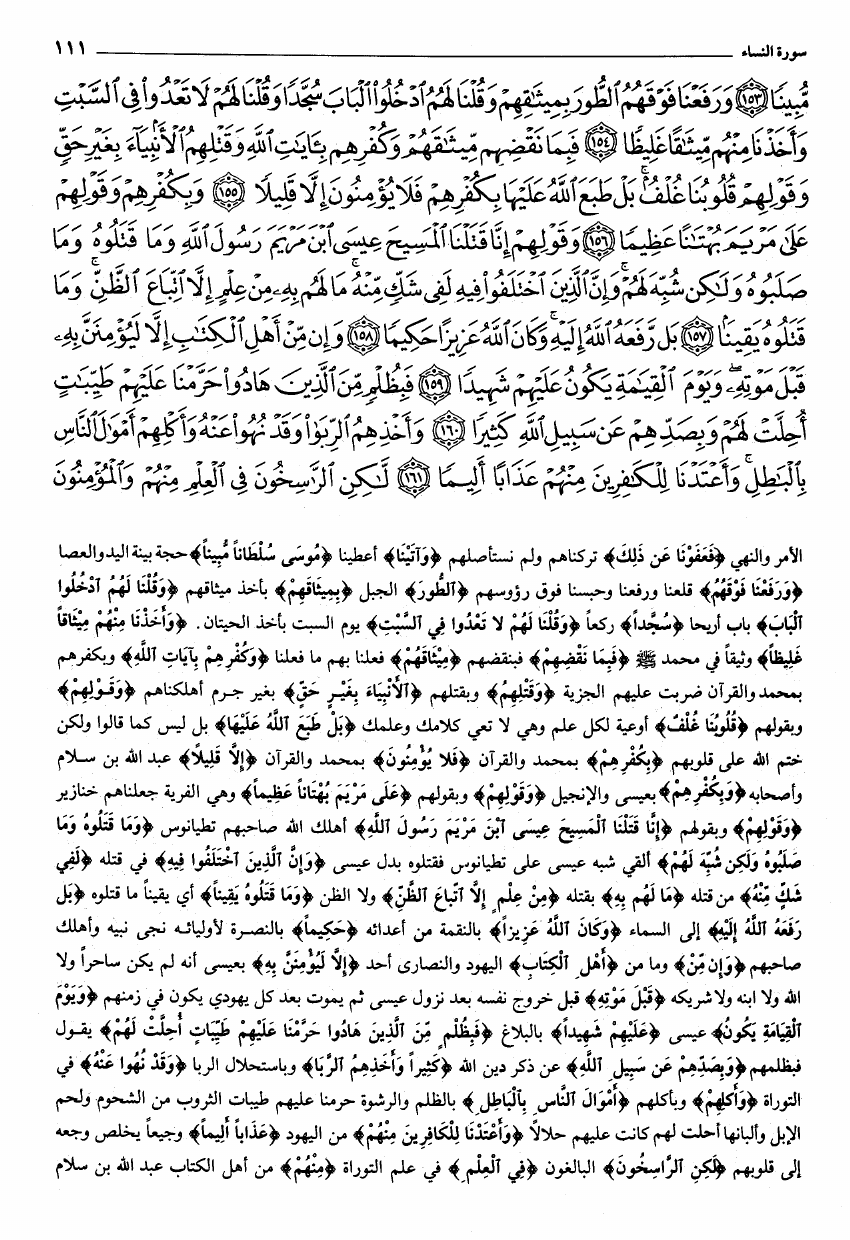 سورة النساء ١١١
مُّبِينًا ﴿١٥٣﴾ وَرَفَعْنَا فَوْقَهُمُ ٱلطُّورَ بِمِيثَٰقِهِمْ وَقُلْنَا لَهُمُ ٱدْخُلُوا۟ ٱلْبَابَ سُجَّدًا وَقُلْنَا لَهُمْ لَا تَعْدُوا۟ فِى ٱلسَّبْتِ
وَأَخَذْنَا مِنْهُم مِّيثَٰقًا غَلِيظًا ﴿١٥٤﴾ فَبِمَا نَقْضِهِم مِّيثَٰقَهُمْ وَكُفْرِهِم بِـَٔايَٰتِ ٱللَّهِ وَقَتْلِهِمُ ٱلْأَنۢبِيَآءَ بِغَيْرِ حَقٍّ
وَقَوْلِهِمْ قُلُوبُنَا غُلْفٌۢ ۚ بَلْ طَبَعَ ٱللَّهُ عَلَيْهَا بِكُفْرِهِمْ فَلَا يُؤْمِنُونَ إِلَّا قَلِيلًا ﴿١٥٥﴾ وَبِكُفْرِهِمْ وَقَوْلِهِمْ
عَلَىٰ مَرْيَمَ بُهْتَٰنًا عَظِيمًا ﴿١٥٦﴾ وَقَوْلِهِمْ إِنَّا قَتَلْنَا ٱلْمَسِيحَ عِيسَى ٱبْنَ مَرْيَمَ رَسُولَ ٱللَّهِ وَمَا قَتَلُوهُ وَمَا
صَلَبُوهُ وَلَٰكِن شُبِّهَ لَهُمْ ۚ وَإِنَّ ٱلَّذِينَ ٱخْتَلَفُوا۟ فِيهِ لَفِى شَكٍّ مِّنْهُ ۚ مَا لَهُم بِهِۦ مِنْ عِلْمٍ إِلَّا ٱتِّبَاعَ ٱلظَّنِّ ۚ وَمَا
قَتَلُوهُ يَقِينًۢا ﴿١٥٧﴾ بَل رَّفَعَهُ ٱللَّهُ إِلَيْهِ ۚ وَكَانَ ٱللَّهُ عَزِيزًا حَكِيمًا ﴿١٥٨﴾ وَإِن مِّنْ أَهْلِ ٱلْكِتَٰبِ إِلَّا لَيُؤْمِنَنَّ بِهِۦ
قَبْلَ مَوْتِهِۦ ۖ وَيَوْمَ ٱلْقِيَٰمَةِ يَكُونُ عَلَيْهِمْ شَهِيدًا ﴿١٥٩﴾ فَبِظُلْمٍ مِّنَ ٱلَّذِينَ هَادُوا۟ حَرَّمْنَا عَلَيْهِمْ طَيِّبَٰتٍ
أُحِلَّتْ لَهُمْ وَبِصَدِّهِمْ عَن سَبِيلِ ٱللَّهِ كَثِيرًا ﴿١٦٠﴾ وَأَخْذِهِمُ ٱلرِّبَوٰا۟ وَقَدْ نُهُوا۟ عَنْهُ وَأَكْلِهِمْ أَمْوَٰلَ ٱلنَّاسِ
بِٱلْبَٰطِلِ ۚ وَأَعْتَدْنَا لِلْكَٰفِرِينَ مِنْهُمْ عَذَابًا أَلِيمًا ﴿١٦١﴾ لَّٰكِنِ ٱلرَّٰسِخُونَ فِى ٱلْعِلْمِ مِنْهُمْ وَٱلْمُؤْمِنُونَ
الأمر والنهي ﴿فَعَفَوْنَا عَن ذَلِكَ﴾ تركناهم ولم نستأصلهم ﴿وَآتَيْنَا﴾ أعطينا ﴿مُوسَى سُلْطَاناً مُّبِيناً﴾ حجة بينة اليد والعصا
﴿وَرَفَعْنَا فَوْقَهُمُ﴾ قلعنا ورفعنا وحبسنا فوق رؤوسهم ﴿ٱلطُّورَ﴾ الجبل ﴿بِمِيثَاقِهِمْ﴾ بأخذ ميثاقهم ﴿وَقُلْنَا لَهُمُ ٱدْخُلُوا
ٱلْبَابَ﴾ باب أريحا ﴿سُجَّداً﴾ ركعاً ﴿وَقُلْنَا لَهُمْ لا تَعْدُوا فِي ٱلسَّبْتِ﴾ يوم السبت بأخذ الحيتان. ﴿وَأَخَذْنَا مِنْهُمْ مِيْثَاقاً
غَلِيظاً﴾ وثيقاً في محمد ﷺ ﴿فَبِمَا نَقْضِهِمْ﴾ فبنقضهم ﴿مِيْثَاقَهُمْ﴾ فعلنا بهم ما فعلنا ﴿وَكُفْرِهِمْ بِآيَاتِ ٱللَّهِ﴾ وبكفرهم
بمحمد والقرآن ضربت عليهم الجزية ﴿وَقَتْلِهِمُ﴾ وبقتلهم ﴿ٱلْأَنْبِيَاءَ بِغَيْرِ حَقٍّ﴾ بغير جرم أهلكناهم ﴿وَقَوْلِهِمْ﴾
وبقولهم ﴿قُلُوبُنَا غُلْفٌ﴾ أوعية لكل علم وهي لا تعي كلامك وعلمك ﴿بَلْ طَبَعَ ٱللَّهُ عَلَيْهَا﴾ بل ليس كما قالوا ولكن
ختم الله على قلوبهم ﴿بِكُفْرِهِمْ﴾ بمحمد والقرآن ﴿فَلا يُؤْمِنُونَ﴾ بمحمد والقرآن ﴿إِلَّا قَلِيلاً﴾ عبد الله بن سلام
وأصحابه ﴿وَبِكُفْرِهِمْ﴾ بعيسى والإنجيل ﴿وَقَوْلِهِمْ﴾ وبقولهم ﴿عَلَى مَرْيَمَ بُهْتَاناً عَظِيماً﴾ وهي الفرية جعلناهم خنازير
﴿وَقَوْلِهِمْ﴾ وبقولهم ﴿إِنَّا قَتَلْنَا ٱلْمَسِيحَ عِيسَى ٱبْنَ مَرْيَمَ رَسُولَ ٱللَّهِ﴾ أهلك الله صاحبهم تطيانوس ﴿وَمَا قَتَلُوهُ وَمَا
صَلَبُوهُ وَلَكِن شُبِّهَ لَهُمْ﴾ ألقي شبه عيسى على تطيانوس فقتلوه بدل عيسى ﴿وَإِنَّ ٱلَّذِينَ ٱخْتَلَفُوا فِيهِ﴾ في قتله ﴿لَفِي
شَكٍّ مِّنْهُ﴾ من قتله ﴿مَا لَهُم بِهِ﴾ بقتله ﴿مِنْ عِلْمٍ إِلَّا ٱتِّبَاعَ ٱلظَّنِّ﴾ ولا الظن ﴿وَمَا قَتَلُوهُ يَقِيناً﴾ أي يقيناً ما قتلوه ﴿بَل
رَفَعَهُ ٱللَّهُ إِلَيْهِ﴾ إلى السماء ﴿وَكَانَ ٱللَّهُ عَزِيزاً﴾ بالنقمة من أعدائه ﴿حَكِيماً﴾ بالنصرة لأوليائه نجى نبيه وأهلك
صاحبهم ﴿وَإِن مِّنْ﴾ وما من ﴿أَهْلِ ٱلْكِتَابِ﴾ اليهود والنصارى أحد ﴿إِلَّا لَيُؤْمِنَنَّ بِهِ﴾ بعيسى أنه لم يكن ساحراً ولا
الله ولا ابنه ولا شريكه ﴿قَبْلَ مَوْتِهِ﴾ قبل خروج نفسه بعد نزول عيسى ثم يموت بعد كل يهودي يكون في زمنهم ﴿وَيَوْمَ
ٱلْقِيَامَةِ يَكُونُ﴾ عيسى ﴿عَلَيْهِمْ شَهِيداً﴾ بالبلاغ ﴿فَبِظُلْمٍ مِّنَ ٱلَّذِينَ هَادُوا حَرَّمْنَا عَلَيْهِمْ طَيِّبَاتٍ أُحِلَّتْ لَهُمْ﴾ يقول
فبظلمهم ﴿وَبِصَدِّهِمْ عَن سَبِيلِ ٱللَّهِ﴾ عن ذكر دين الله ﴿كَثِيراً وَأَخْذِهِمُ ٱلرِّبَا﴾ وباستحلال الربا ﴿وَقَدْ نُهُوا عَنْهُ﴾ في
التوراة ﴿وَأَكْلِهِمْ﴾ وبأكلهم ﴿أَمْوَالَ ٱلنَّاسِ بِٱلْبَاطِلِ﴾ بالظلم والرشوة حرمنا عليهم طيبات الثروب من الشحوم ولحم
الإبل وألبانها أحلت لهم كانت عليهم حلالاً ﴿وَأَعْتَدْنَا لِلْكَافِرِينَ مِنْهُمْ﴾ من اليهود ﴿عَذَاباً أَلِيماً﴾ وجيعاً يخلص وجعه
إلى قلوبهم ﴿لَكِنِ ٱلرَّاسِخُونَ﴾ البالغون ﴿فِي ٱلْعِلْمِ﴾ في علم التوراة ﴿مِنْهُمْ﴾ من أهل الكتاب عبد الله بن سلام